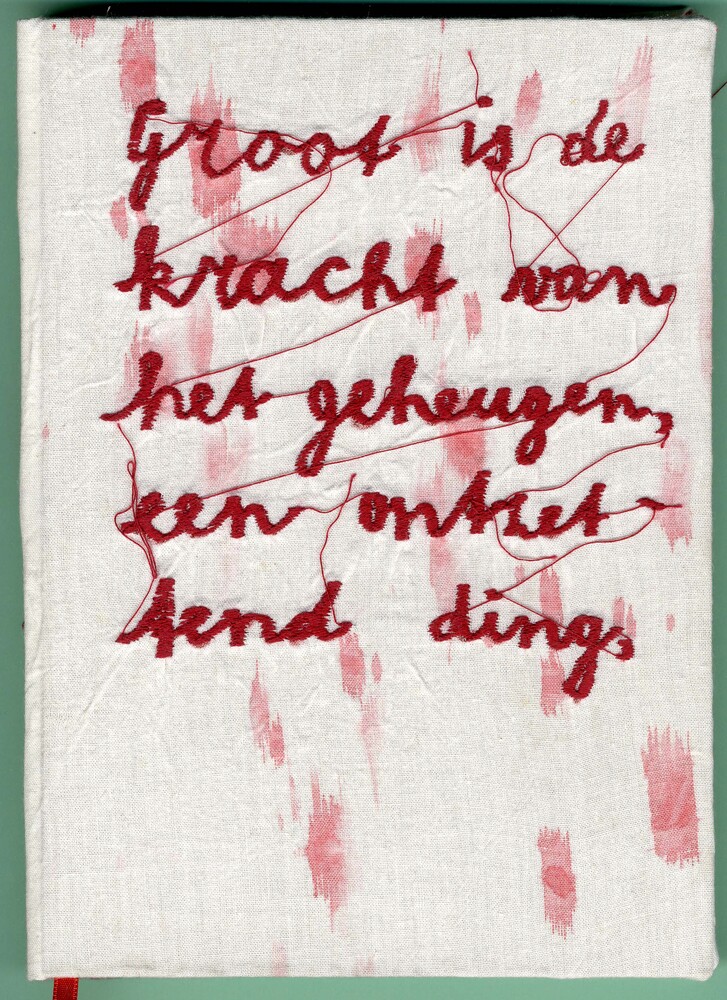 Groot is de
kracht van
het geheugen,
een ontzet-
tend ding,